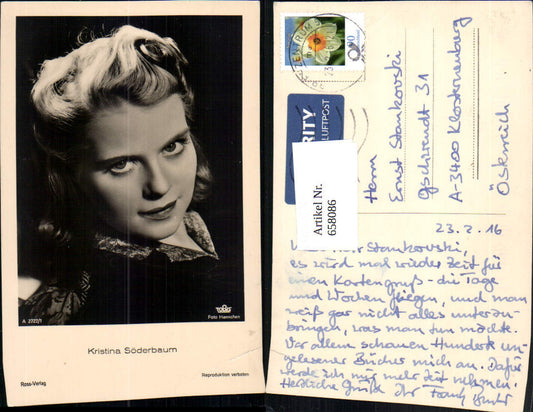 A 2727/1
Foto Haenchen
Kristina Söderbaum
Reproduktion verboten
Ross-Verlag
ZENTRUM
90
RITY
LUFTPOST
Artikel Nr.
658086
Herrn
Ernst Stankovski
Gschwendt 31
A-3400 Klosterneuburg
Österreich
23.2.16
Herr Stankovski,
es wird mal wieder Zeit für
einen Kartengruß - die Tage
und Wochen fliegen, und man
weiß gar nicht alles unterzu-
bringen, was man tun möchte.
Vor allem schauen Hunderte un-
gelesener Bücher mich an. Dafür
werde ich mir mehr Zeit nehmen.
Herzliche Grüße Ihr